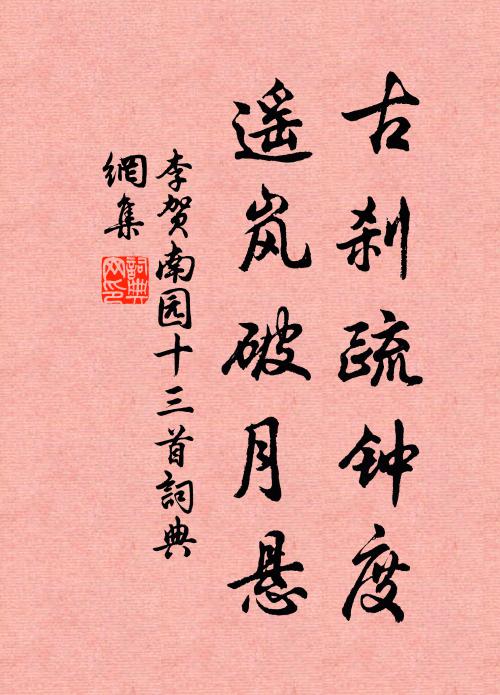 古刹疏钟度
遥岚破月悬
李贺南园十三首詞典
網集
詞典網印